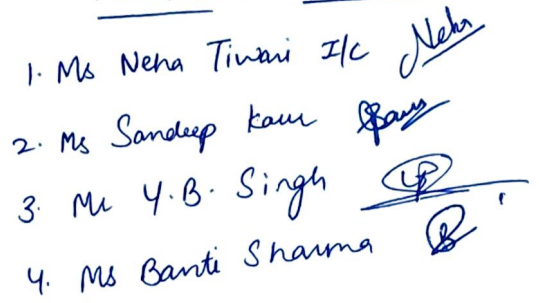 1. Ms Neha Tiwari I/C Neha
2. Ms Sandeep Kaur
3. Mr Y.B. Singh
4. Ms Banti Sharma